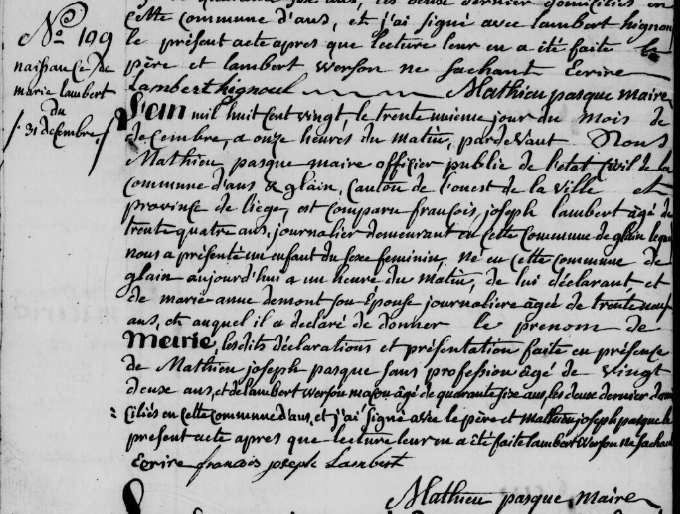 cette commune d'ans, et j'ai signé avec lambert hignoul
le présent acte apres que lecture leur en a été faite le
père et lambert Werson ne sachant Ecrire
Lambert hignoul Mathieu pasque maire
N° 199
naissance de
marie lambert
du
31 decembre
L'an mil huit cent vingt, le trente unieme jour du mois de
decembre, a onze heures du matin, pardevant Nous
Mathieu pasque maire officier public de l'etat Civil de la
commune d'ans & glain, Canton de l'ouest de la ville et
province de liege, est comparu francois, joseph lambert âgé de
trente quatre ans, journalier demeurant en cette Commune de glain lequel
nous a présenté un enfant du sexe feminin, né en cette commune de
glain aujourd'hui a un heure du matin, de lui déclarant et
de marie anne demont son Epouse journaliere âgée de trente neuf
ans, et auquel il a declaré de donner le prenom de
Meirie, lesdits déclarations et présentation faite en présence
de Mathieu joseph pasque sans profession âgé de vingt
deux ans, et de lambert Werson mason âgé de quarante six ans, les deux dernier domi
ciliés en cette commune d'ans, et j'ai signé avec le père et mathieu joseph pasque le
present acte apres que lecture leur en a été faite lambert Werson ne sachant
Ecrire francois joseph Lambert
Mathieu pasque maire